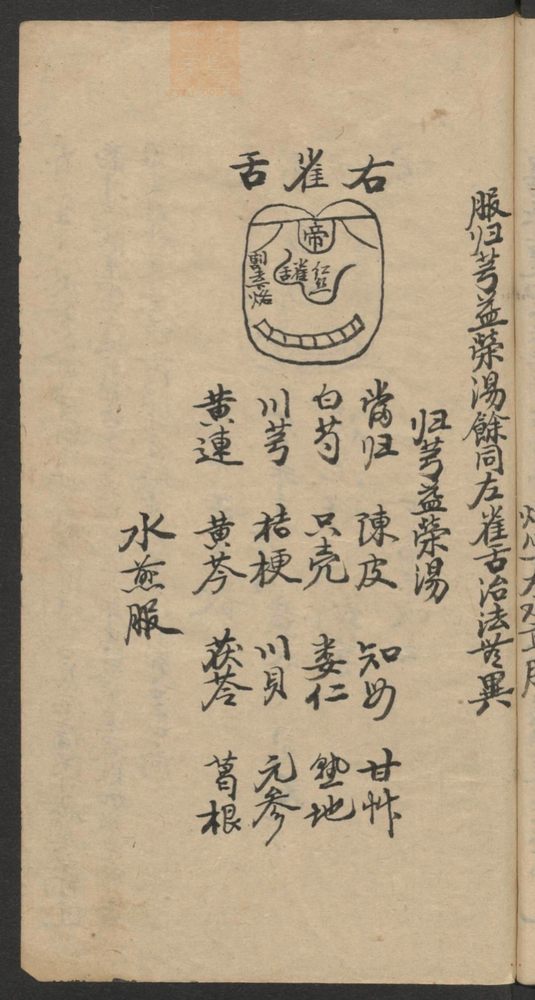 服归芎益荣湯餘同左雀舌治法無異
右雀舌
帝
紅
雀舌
烙
归芎益荣湯
當归 陳皮 知母 甘艸
白芍 只壳 蒌仁 熟地
川芎 桔梗 川貝 元参
黄連 黄芩 茯苓 葛根
水煎服